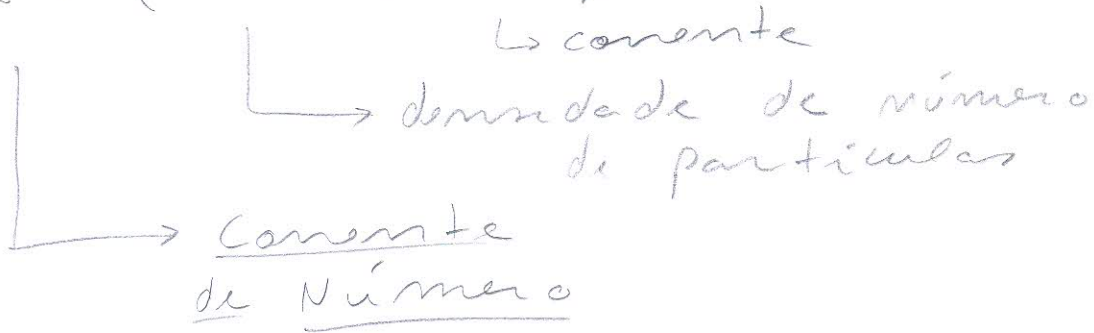 ↳ corrente
→ densidade de número
de partículas
→ Corrente
de Número